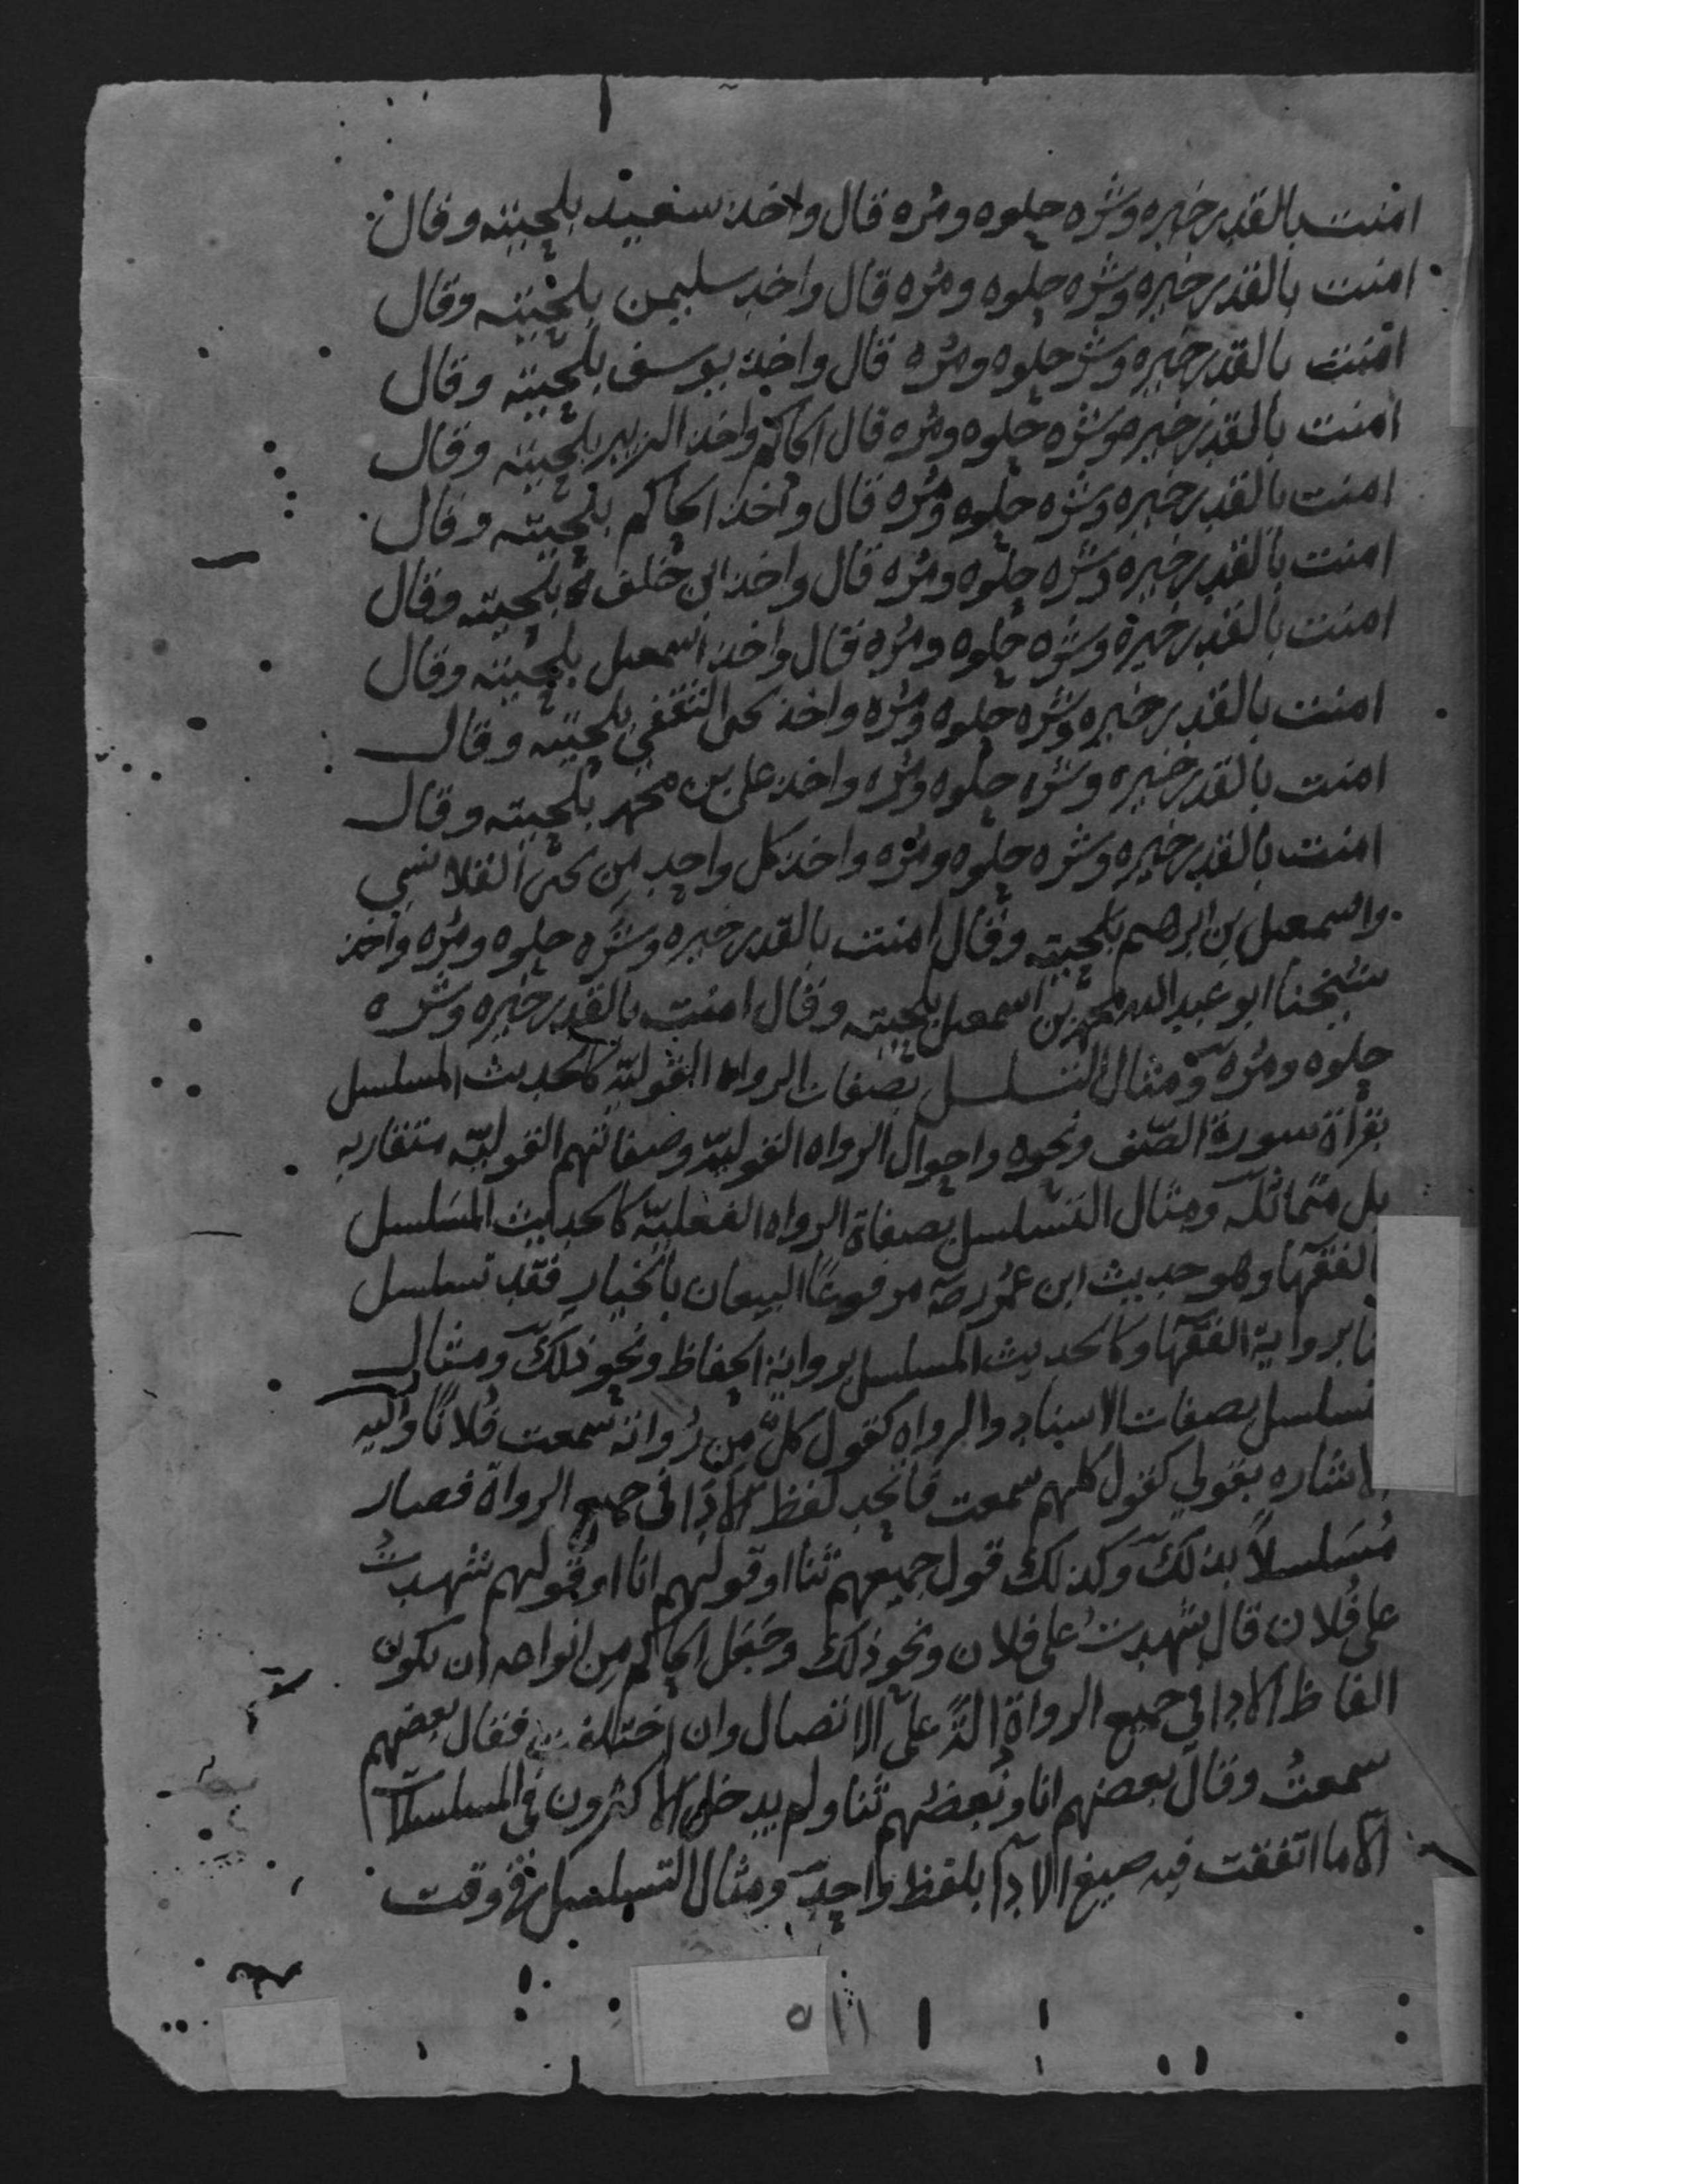 امنت بالقدر خيره وشره حلوه ومره قال واخذ سعيد بلحيته وقال
امنت بالقدر خيره وشره حلوه ومره قال واخذ سليمن بلحيته وقال
امنت بالقدر خيره وشره حلوه ومره قال واخذ يوسف بلحيته وقال
امنت بالقدر خيره وشره حلوه ومره قال الحاكم واخذ الزبير بلحيته وقال
امنت بالقدر خيره وشره حلوه ومره قال واخذ الحاكم بلحيته وقال
امنت بالقدر خيره وشره حلوه ومره قال واخذ ابن خلف بلحيته وقال
امنت بالقدر خيره وشره حلوه ومره قال واخذ اسمعيل بلحيته وقال
امنت بالقدر خيره وشره حلوه ومره واخذ يحيى الثقفي بلحيته وقال
امنت بالقدر خيره وشره حلوه ومره واخذ علي بن محمد بلحيته وقال
امنت بالقدر خيره وشره حلوه ومره واخذ كل واحد من يحيى القلانسي
واسمعيل بن ابرهيم بلحيته وقال امنت بالقدر خيره وشره حلوه ومره واخذ
شيخنا ابو عبد الله محمد بن اسمعيل بلحيته وقال امنت بالقدر خيره وشره
حلوه ومره ومثال التسلسل بصفات الرواه القوليّه كالحديث المسلسل
بقراة سورة الصّف ونحوه واحوال الرواه القوليّه وصفاتهم القوليّه متقاربه
بل متماثله ومثال التسلسل بصفاة الرواه الفعليّه كالحديث المسلسل
بالفقها وهو حديث ابن عمر رضه مرفوعًا البيعان بالخيار فقد تسلسل
برواية الفقها وكالحديث المسلسل برواية الحفاظ ونحو ذلك ومثال
التسلسل بصفات الاسناد والرواه كقول كلّ من رواته سمعت فلانًا واليه
الاشاره بقولي كقول كلهم سمعت فاتحد لفظ الادا في جميع الرواة فصار
مُسَلسلاً بذلك وكذلك قول جميعهم ثنا او قولهم انا او قولهم شهدتُ
على فُلان قال شهدتُ على فلان ونحو ذلك وجَعَل الحاكم من انواعه ان يكون
الفاظ الادا في جميع الرواة الدّ على الاتصال وان اختلفت فقال بعضهم
سمعتُ وقال بعضهم انا وبعضُهم ثنا ولم يدخل الاكثرون في المسلسلا
الا ما اتفقت فيه صيغ الادآ بلفظ واحدٍ ومثال التسلسل في وقت